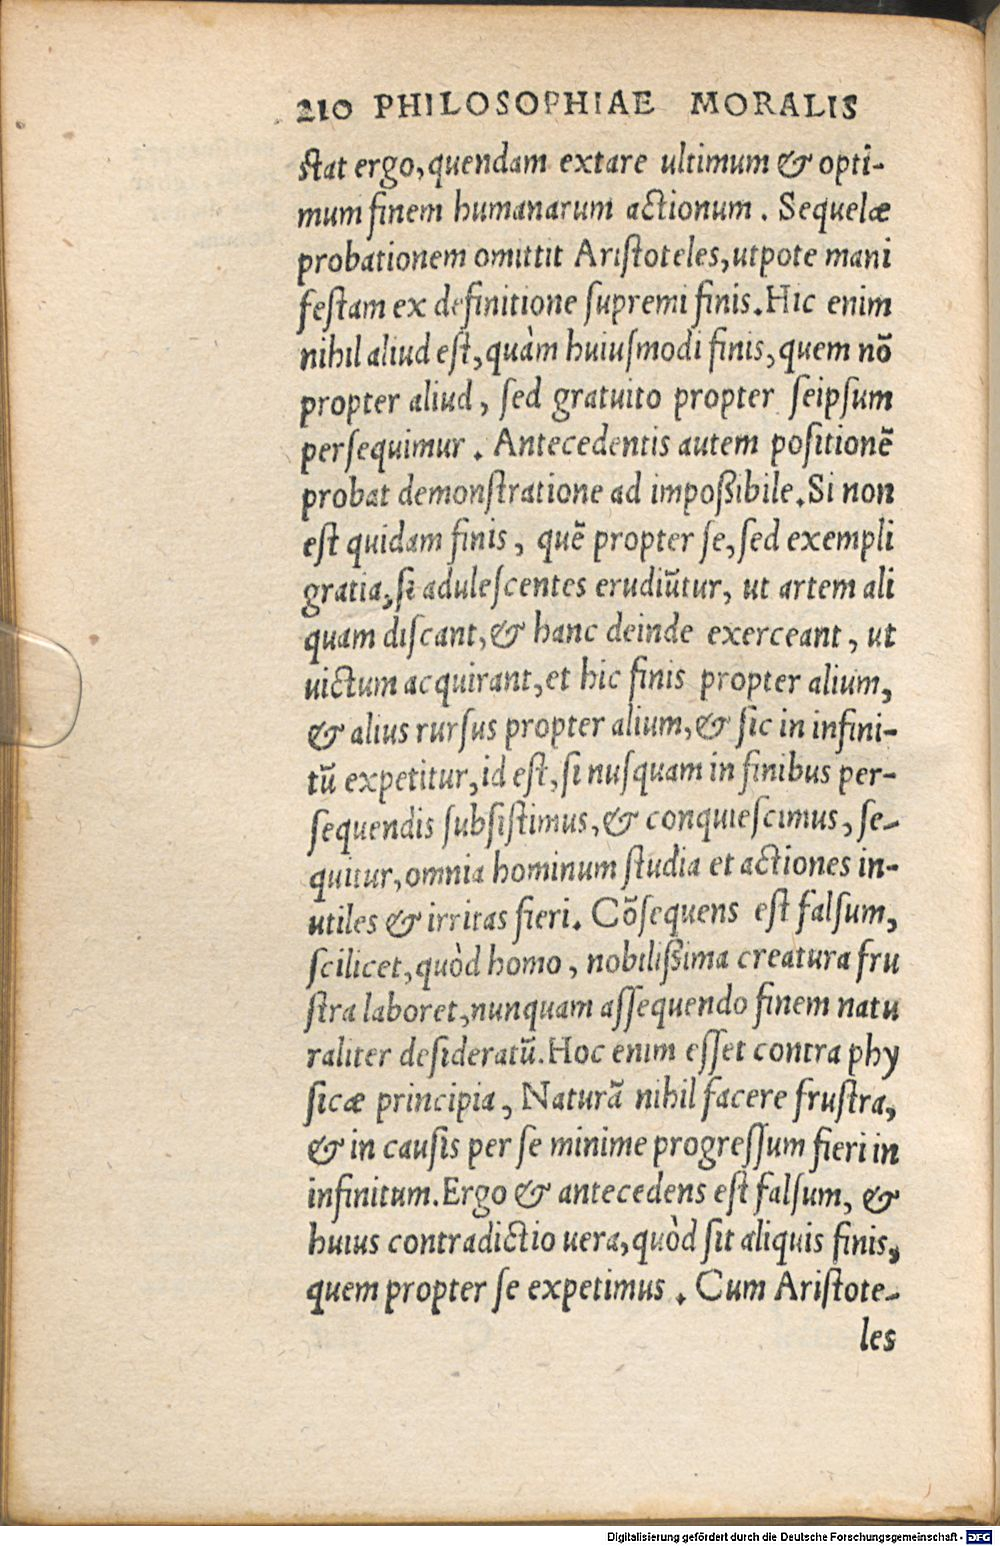 210 PHILOSOPHIAE MORALIS
ſtat ergo, quendam extare ultimum & opti-
mum finem humanarum actionum. Sequelæ
probationem omittit Ariſtoteles, utpote mani
feſtam ex definitione ſupremi finis. Hic enim
nihil aliud eſt, quàm huiuſmodi finis, quem nō
propter aliud, ſed gratuito propter ſeipſum
perſequimur. Antecedentis autem poſitionē
probat demonſtratione ad impoßibile. Si non
eſt quidam finis, quē propter ſe, ſed exempli
gratia, ſi aduleſcentes erudiūtur, ut artem ali
quam diſcant, & hanc deinde exerceant, ut
uictum acquirant, et hic finis propter alium,
& alius rurſus propter alium, & ſic in infini-
tū expetitur, id eſt, ſi nuſquam in finibus per-
ſequendis ſubſiſtimus, & conquieſcimus, ſe-
quitur, omnia hominum ſtudia et actiones in-
utiles & irritas fieri. Cōſequens eſt falſum,
ſcilicet, quòd homo, nobilißima creatura fru
ſtra laboret, nunquam aſſequendo finem natu
raliter deſideratū. Hoc enim eſſet contra phy
ſicæ principia, Naturā nihil facere fruſtra,
& in cauſis per ſe minime progreſſum fieri in
infinitum. Ergo & antecedens eſt falſum, &
huius contradictio uera, quòd ſit aliquis finis,
quem propter ſe expetimus. Cum Ariſtote-
les
Digitalisierung gefördert durch die Deutsche Forschungsgemeinschaft - DFG